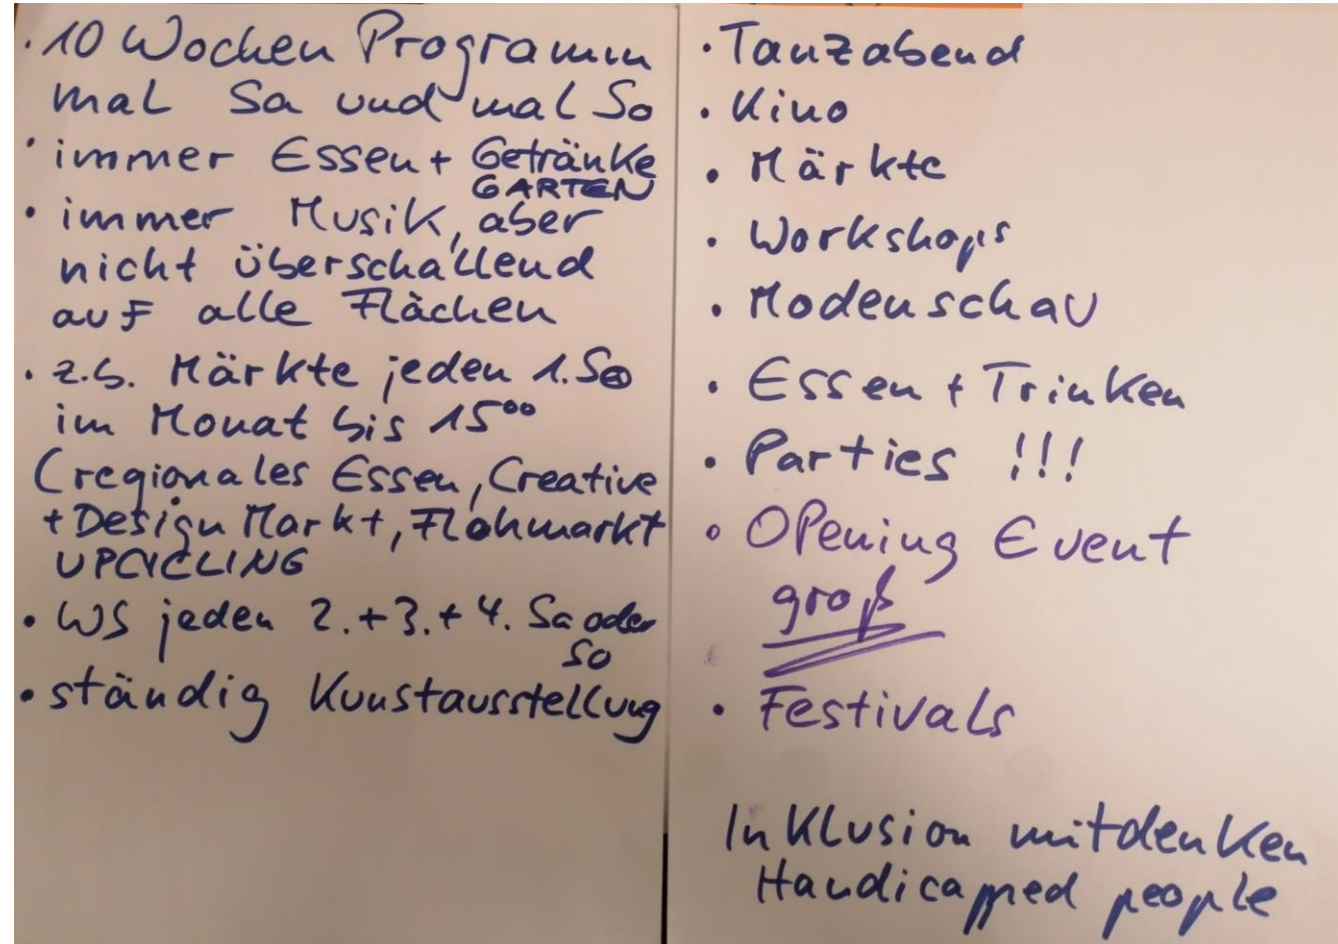 · 10 Wochen Programm
mal Sa und mal So
· immer Essen + Getränke
GARTEN
· immer Musik, aber
nicht überschallend
auf alle Flächen
· z.b. Märkte jeden 1. So
im Monat bis 15⁰⁰
(regionales Essen, Creative
+ Design Markt, Flohmarkt
UPCYCLING
· WS jeden 2. + 3. + 4. Sa oder
So
· ständig Kunstausstellung
· Tanzabend
· Kino
· Märkte
· Workshops
· Modenschau
· Essen + Trinken
· Parties !!!
· Opening Event
groß
· Festivals
Inklusion mitdenken
Handicapped people